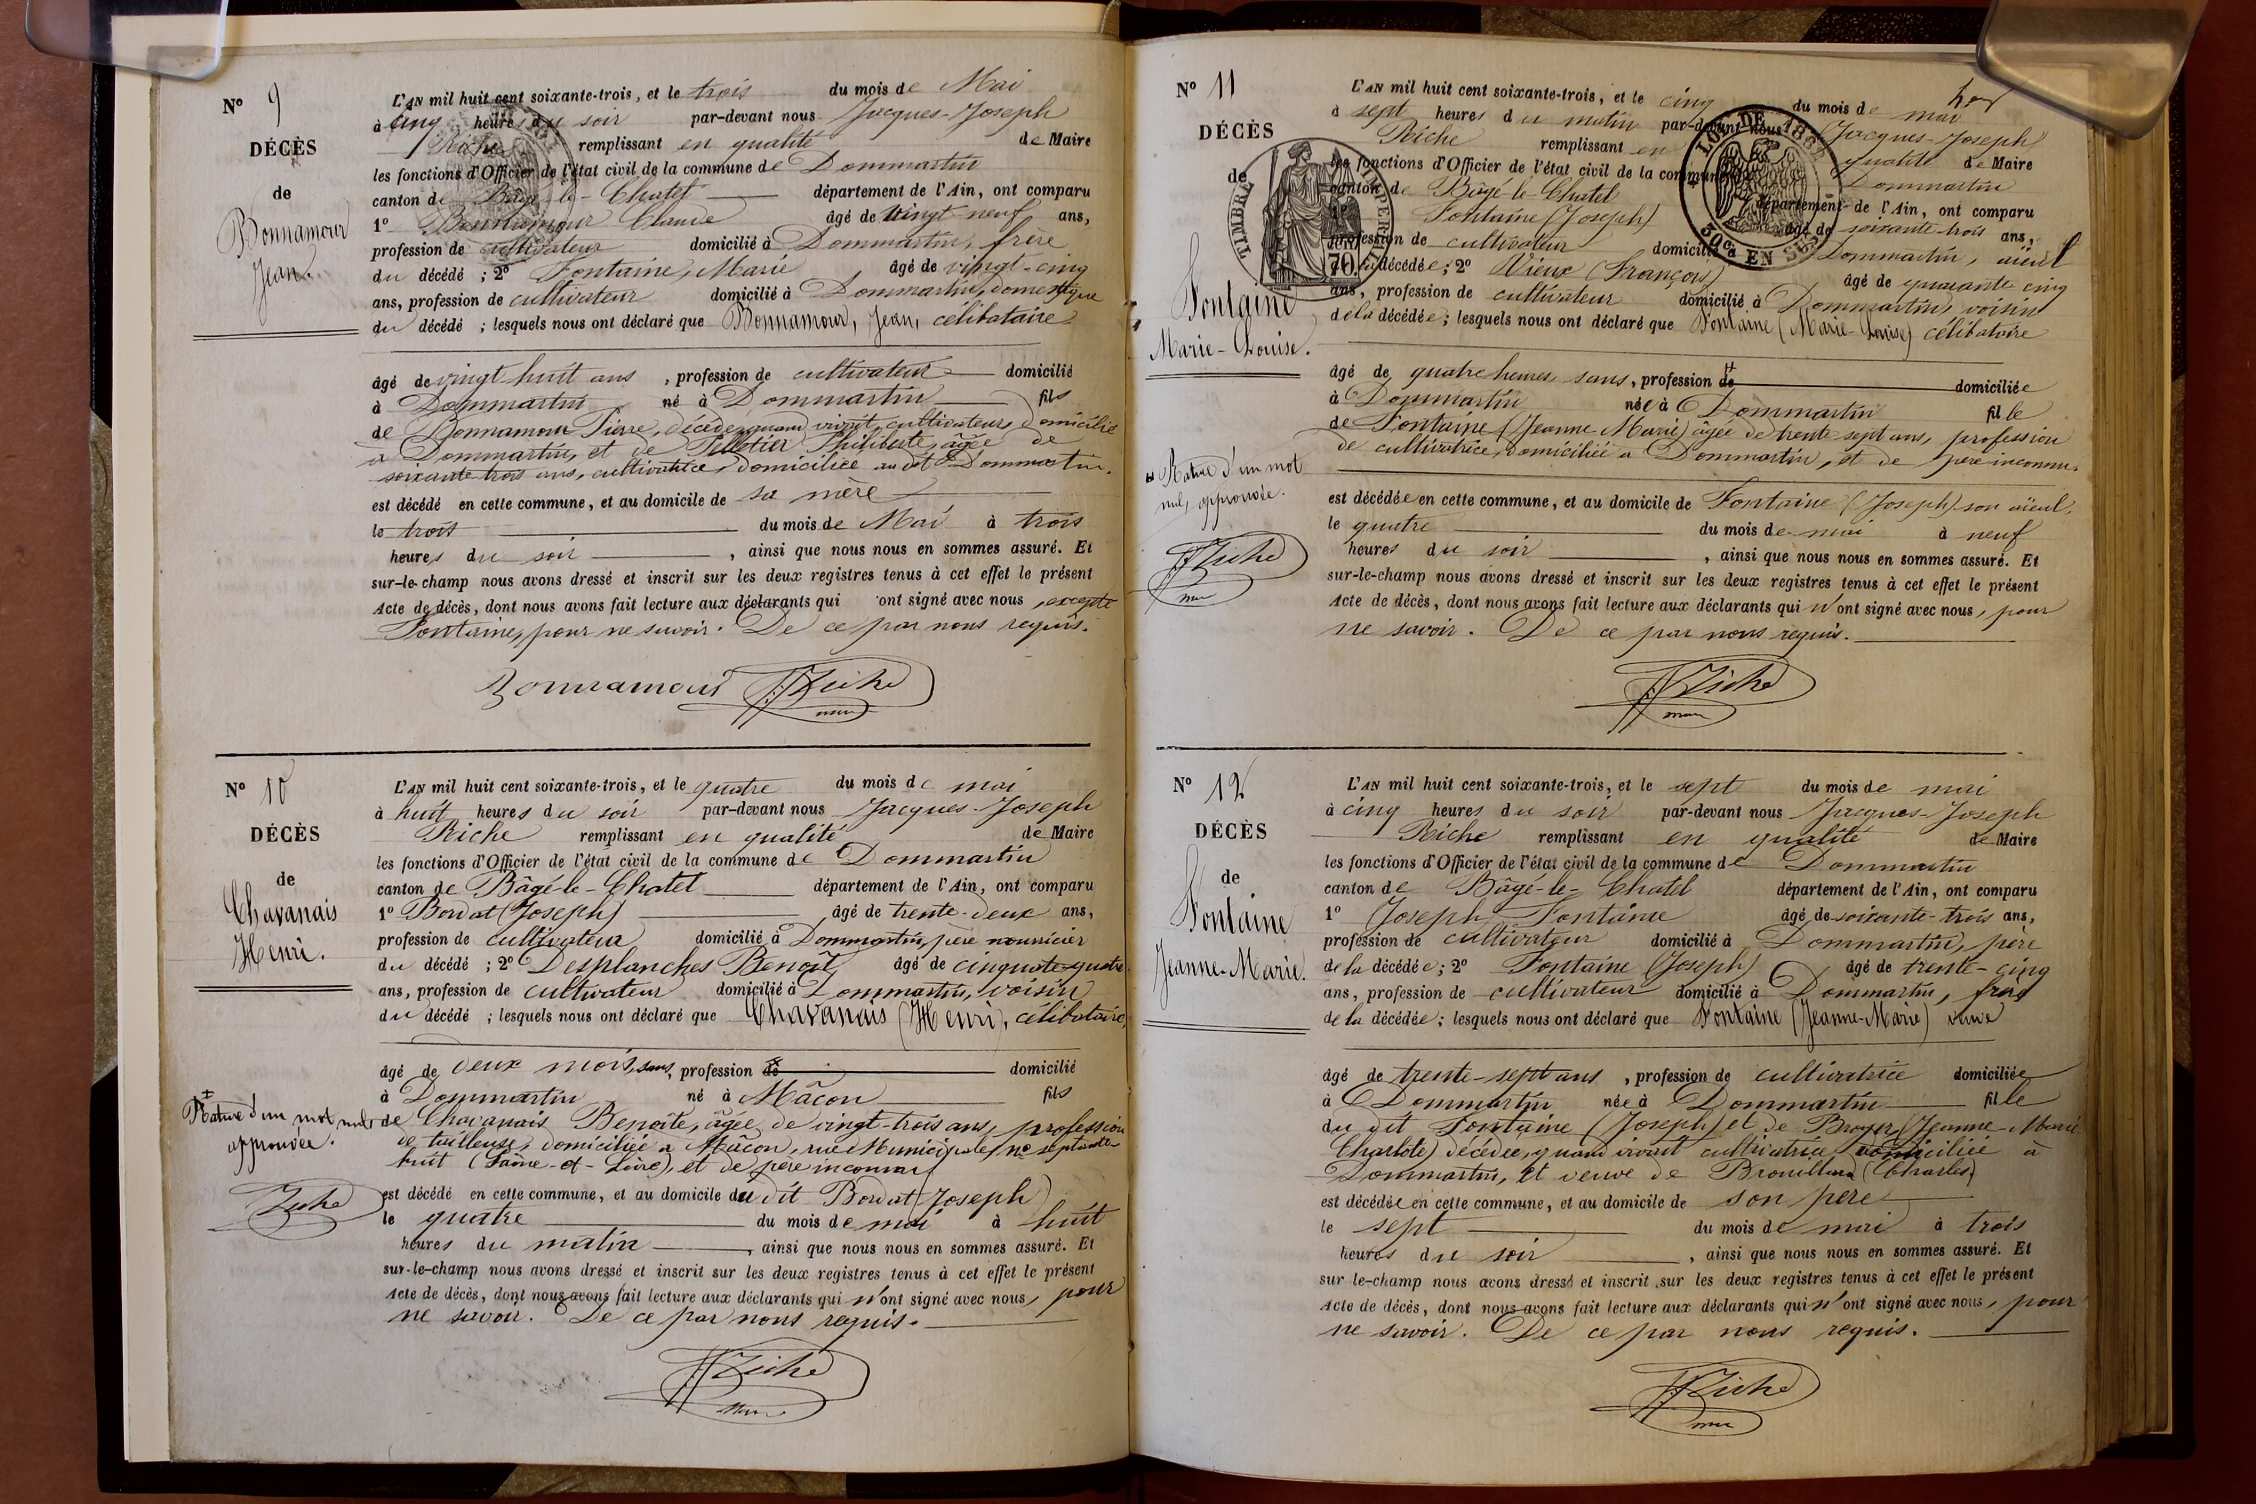 N° 9
DÉCÈS
de
Bonnamour
Jean.
L'AN mil huit cent soixante-trois, et le trois du mois de Mai
à cinq heures du soir par-devant nous Jacques-Joseph
Riche remplissant en qualité de Maire
les fonctions d'Officier de l'état civil de la commune de Dommartin
canton de Bâgé-le-Chatel département de l'Ain, ont comparu
1° Bonnamour Claude âgé de vingt-neuf ans,
profession de cultivateur domicilié à Dommartin, frère
du décédé ; 2° Fontaine, Marie âgé de vingt-cinq
ans, profession de cultivateur domicilié à Dommartin, domestique
du décédé ; lesquels nous ont déclaré que Bonnamour, Jean, célibataire
âgé de vingt huit ans, profession de cultivateur domicilié
à Dommartin né à Dommartin fils
de Bonnamour Pierre, décédé, quand vivait, cultivateur, domicilié
à Dommartin, et de Pelletier Philiberte, âgée de
soixante trois ans, cultivatrice, domiciliée au dit Dommartin.
est décédé en cette commune, et au domicile de sa mère
le trois du mois de Mai à trois
heures du soir, ainsi que nous nous en sommes assuré. Et
sur-le-champ nous avons dressé et inscrit sur les deux registres tenus à cet effet le présent
Acte de décès, dont nous avons fait lecture aux déclarants qui ont signé avec nous, excepté
Fontaine, pour ne savoir. De ce par nous requis.
Bonnamour J.J. Riche
maire
N° 10
DÉCÈS
de
Chavanais
Henri.
L'AN mil huit cent soixante-trois, et le quatre du mois de mai
à huit heures du soir par-devant nous Jacques-Joseph
Riche remplissant en qualité de Maire
les fonctions d'Officier de l'état civil de la commune de Dommartin
canton de Bâgé-le-Chatel département de l'Ain, ont comparu
1° Bordat (Joseph) âgé de trente-deux ans,
profession de cultivateur domicilié à Dommartin, père nourricier
du décédé ; 2° Desplanches Benoît, âgé de cinquante-quatre
ans, profession de cultivateur domicilié à Dommartin, voisin
du décédé ; lesquels nous ont déclaré que Chavanais (Henri), célibataire,
âgé de deux mois, sans, profession de domicilié
à Dommartin né à Mâcon fils
de Chavanais Benoîte, âgée de vingt-trois ans, profession
de tailleuse, domiciliée à Mâcon, rue Municipale, n° septante-
huit (Saône-et-Loire), et de père inconnu
est décédé en cette commune, et au domicile du dit Bordat (Joseph)
le quatre du mois de mai à huit
heures du matin, ainsi que nous nous en sommes assuré. Et
sur-le-champ nous avons dressé et inscrit sur les deux registres tenus à cet effet le présent
Acte de décès, dont nous avons fait lecture aux déclarants qui n'ont signé avec nous, pour
ne savoir. De ce par nous requis.
Rature d'un mot nul,
approuvée.
Riche
J.J. Riche
maire
N° 11
DÉCÈS
de
Fontaine
Marie-Louise.
TIMBRE IMPERIAL
70
LOI DE 1862
30es EN SUS
L'AN mil huit cent soixante-trois, et le cinq du mois de mai
à sept heures du matin par-devant nous Jacques-Joseph
Riche remplissant en qualité de Maire
les fonctions d'Officier de l'état civil de la commune Dommartin
canton de Bâgé-le-Chatel département de l'Ain, ont comparu
1° Fontaine (Joseph) âgé de soixante-trois ans,
profession de cultivateur domicilié Dommartin, aïeul
de la décédée ; 2° Vieux (François) âgé de quarante cinq
ans, profession de cultivateur domicilié à Dommartin, voisin
de la décédée ; lesquels nous ont déclaré que Fontaine (Marie-Louise) célibataire
âgé de quatre heures, sans, profession de domiciliée
à Dommartin née à Dommartin fille
de Fontaine (Jeanne Marie) âgée de trente-sept ans, profession
de cultivatrice, domiciliée à Dommartin, et de père inconnu.
est décédée en cette commune, et au domicile de Fontaine (Joseph) son aïeul,
le quatre du mois de mai à neuf
heures du soir, ainsi que nous nous en sommes assuré. Et
sur-le-champ nous avons dressé et inscrit sur les deux registres tenus à cet effet le présent
Acte de décès, dont nous avons fait lecture aux déclarants qui n'ont signé avec nous, pour
ne savoir. De ce par nous requis.
Rature d'un mot
nul, approuvée.
J.J. Riche
maire
J.J. Riche
maire
N° 12
DÉCÈS
de
Fontaine
Jeanne-Marie.
L'AN mil huit cent soixante-trois, et le sept du mois de mai
à cinq heures du soir par-devant nous Jacques-Joseph
Riche remplissant en qualité de Maire
les fonctions d'Officier de l'état civil de la commune de Dommartin
canton de Bâgé-le-Chatel département de l'Ain, ont comparu
1° Joseph Fontaine âgé de soixante-trois ans,
profession de cultivateur domicilié à Dommartin, père
de la décédée ; 2° Fontaine (Joseph) âgé de trente-cinq
ans, profession de cultivateur domicilié à Dommartin, frère
de la décédée ; lesquels nous ont déclaré que Fontaine (Jeanne-Marie) veuve
âgé de trente-sept ans, profession de cultivatrice domiciliée
à Dommartin née à Dommartin fille
du dit Fontaine (Joseph) et de Broyer (Jeanne-Marie
Charlote) décédée, quand vivait cultivatrice, domiciliée à
Dommartin, et veuve de Brouillard (Charles)
est décédée en cette commune, et au domicile de son père
le sept du mois de mai à trois
heures du soir, ainsi que nous nous en sommes assuré. Et
sur-le-champ nous avons dressé et inscrit sur les deux registres tenus à cet effet le présent
Acte de décès, dont nous avons fait lecture aux déclarants qui n'ont signé avec nous, pour
ne savoir. De ce par nous requis.
J.J. Riche
maire